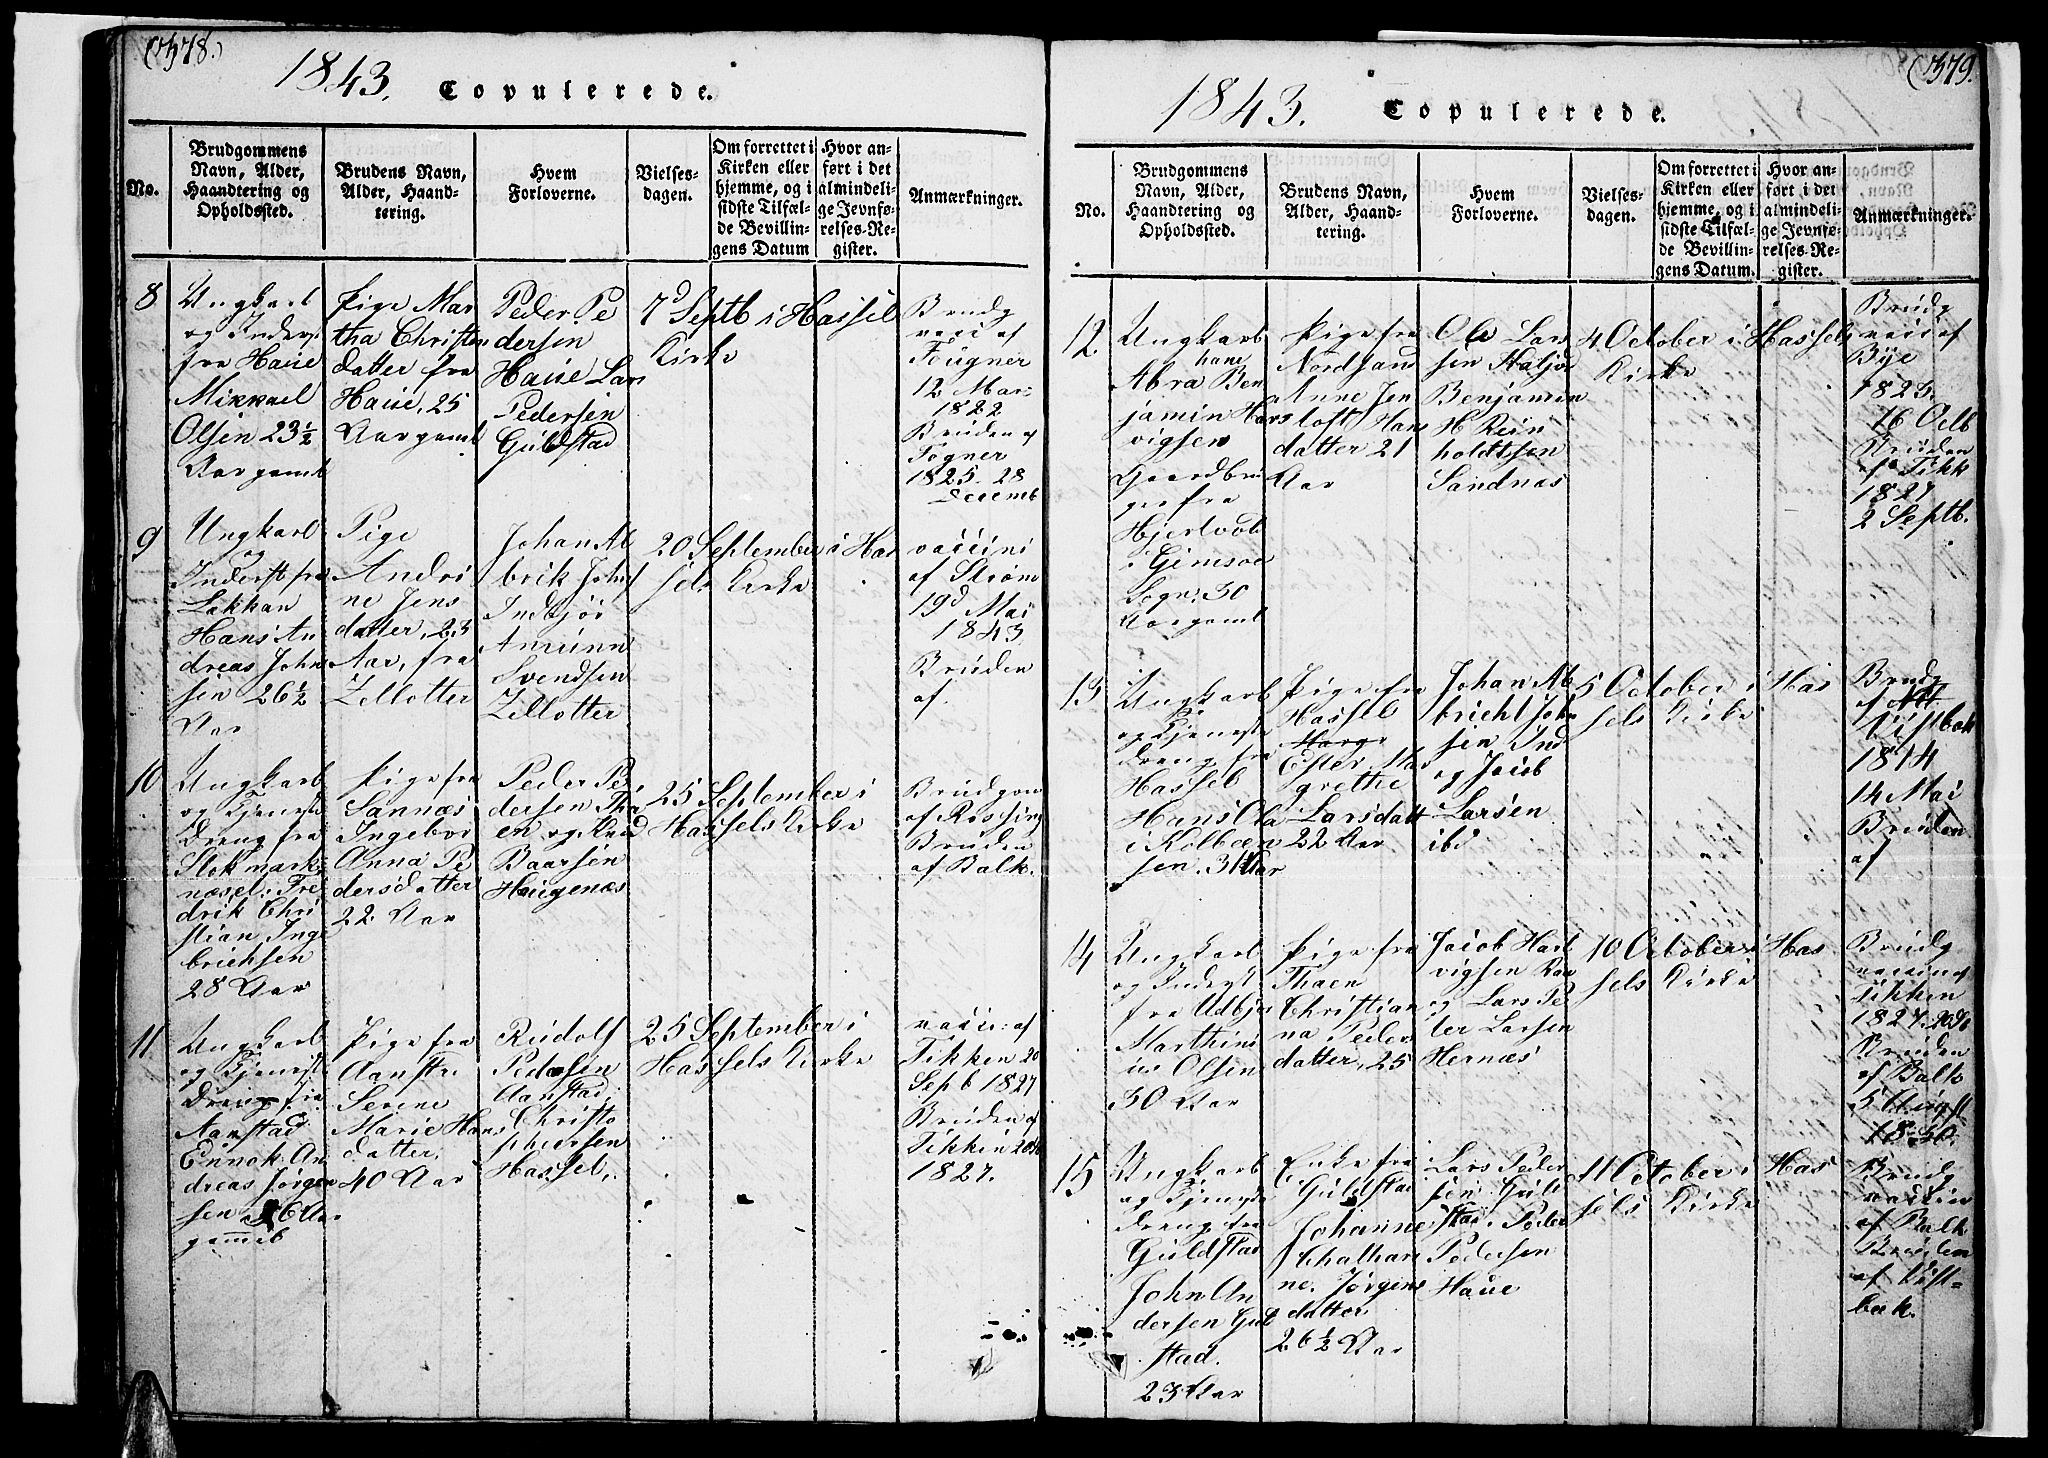 (378.)
1843. Copulerede.
No.
Brudgommens
Navn, Alder,
Haandtering og
Opholdssted.
Brudens Navn,
Alder, Haand-
tering.
Hvem
Forloverne.
Vielses-
dagen.
Om forrettet i
Kirken eller
hjemme, og i
sidste Tilfæl-
de Bevillin-
gens Datum
Hvor an-
ført i det
almindeli-
ge Jevnfø-
relses-Re-
gister.
Anmærkninger.
8
Ungkarl
og Inderst
fra Haue
Mikkael
Olsen 23½
Aar gaml
Pige Mar
tha Christen
datter fra
Haue, 25
Aar gaml
Peder Pe
dersen
Haue Lars
Pedersen
Guldstad
7d Septb i Hassel
Kirke
Brudg
vaci af
Fougner
12 Mar:
1822
Bruden af
Fogner
1825. 28
Decemb
9
Ungkarl
og
Inderst fra
Lakkan
Hans An
dreas John
sen 26½
Aar
Pige
Andri
ne Jens
datter, 23
Aar, fra
Zellotter
Johan Al
brik Johns
Indbjør
Amunn
Svendsen
Zellotter
20 September i Has
sels Kirke
vaccini
af Strøm
19d Mai
1843
Bruden
af.
10
Ungkarl
og Tjeneste
Dreng fra
Stokmark
næsel. Fre
drik Chri
stian Inge
brichsen
28 Aar
Pige fra
Sannæs
Ingebor
Anna Pe
dersdatter
22. Aar
Peder Pe
dersen Tha
en og Knud
Baarsen
Haugenæs
25 September i
Hassels Kirke
Brudgom
af Rossing
Bruden
af Balk.
11
Ungkarl
og Tjeneste
dreng fra
Aanstad
Ennok An
dreas Jørgen
sen 26 Aar
gammel
Pige fra
Aansta
Serene
Marie Hans
datter,
40 Aar
Rudolf
Pedersen
Aanstad,
Christo
phersen
Hassel.
25 September i
Hassels Kirke
vacci: af
Tikken 20
Sept 1827
Bruden af
Tikken 20
1827.
(379.
1843. Copulerede.
No.
Brudgommens
Navn, Alder,
Haandtering og
Opholdssted.
Brudens Navn,
Alder, Haand-
tering.
Hvem
Forloverne.
Vielses-
dagen.
Om forrettet i
Kirken eller
hjemme, og i
sidste Tilfæl-
de Bevillin-
gens Datum.
Hvor an-
ført i det
almindeli-
ge Jevnfø-
relses-Re-
gister.
Anmærkninger.
12.
Ungkarl
Abra hane Ben
jamin Har
vigsen
Gaardbru
ger fra
Hjertvol
i Gimsøe
Sogn, 30
Aar gaml
Pige fra
Nordsand
Anne Jen
sloft Hans
datter 21
Aar
Ole Lar
sen Maljor
Benjamin
H Rein
holdtsen
Sandnæs
4 October i Hassels
Kirke
Brudg
vaci af
Bye
1823.
16 Octb
Bruden
af Tikk
1827
2 Septb.
13
Ungkarl
og Tjeneste
dreng fra
Hassel
Hans Ola
i Kolbeen
sen. 31 Aar
Pige fra
Hassel
Marg
Ester Mar
grethe
Larsdatt
22 Aar
Johan Al
bricht John
sen Ind
og Jacob
Larsen
ibd
5 October i Has
sels Kirke
Brudg
af
Vistbek
1814
14 Mai
Bruden
af
14
Ungkarl
og Inderst
fra Udbjør
Marthin
us Olsen
30 Aar
Pige fra
Thaen
Christian
na Peder
datter, 25
Jacob Hart
vigsen
og Lars Pe
ter Larsen
Hernæs
10 October i Has
sels Kirke
Brudg
vaccin af
Tikken
1827. 20
Bruden
af Balk
5 August
1830.
15
Ungkarl
og Tjeneste
dreng fra
Guldstad
John An
dersen Gul
stad.
23 Aar
Enke fra
Guldstad
Johanne
Chathari
ne. Jørgens
datter
26½ Aar
Lars Peder
sen Guld
stad. Peder
Pedersen
Haue
11 October i Has
sels Kirke
Brudg
vaccin
af Balk
Bruden
af Vist-
bæk.